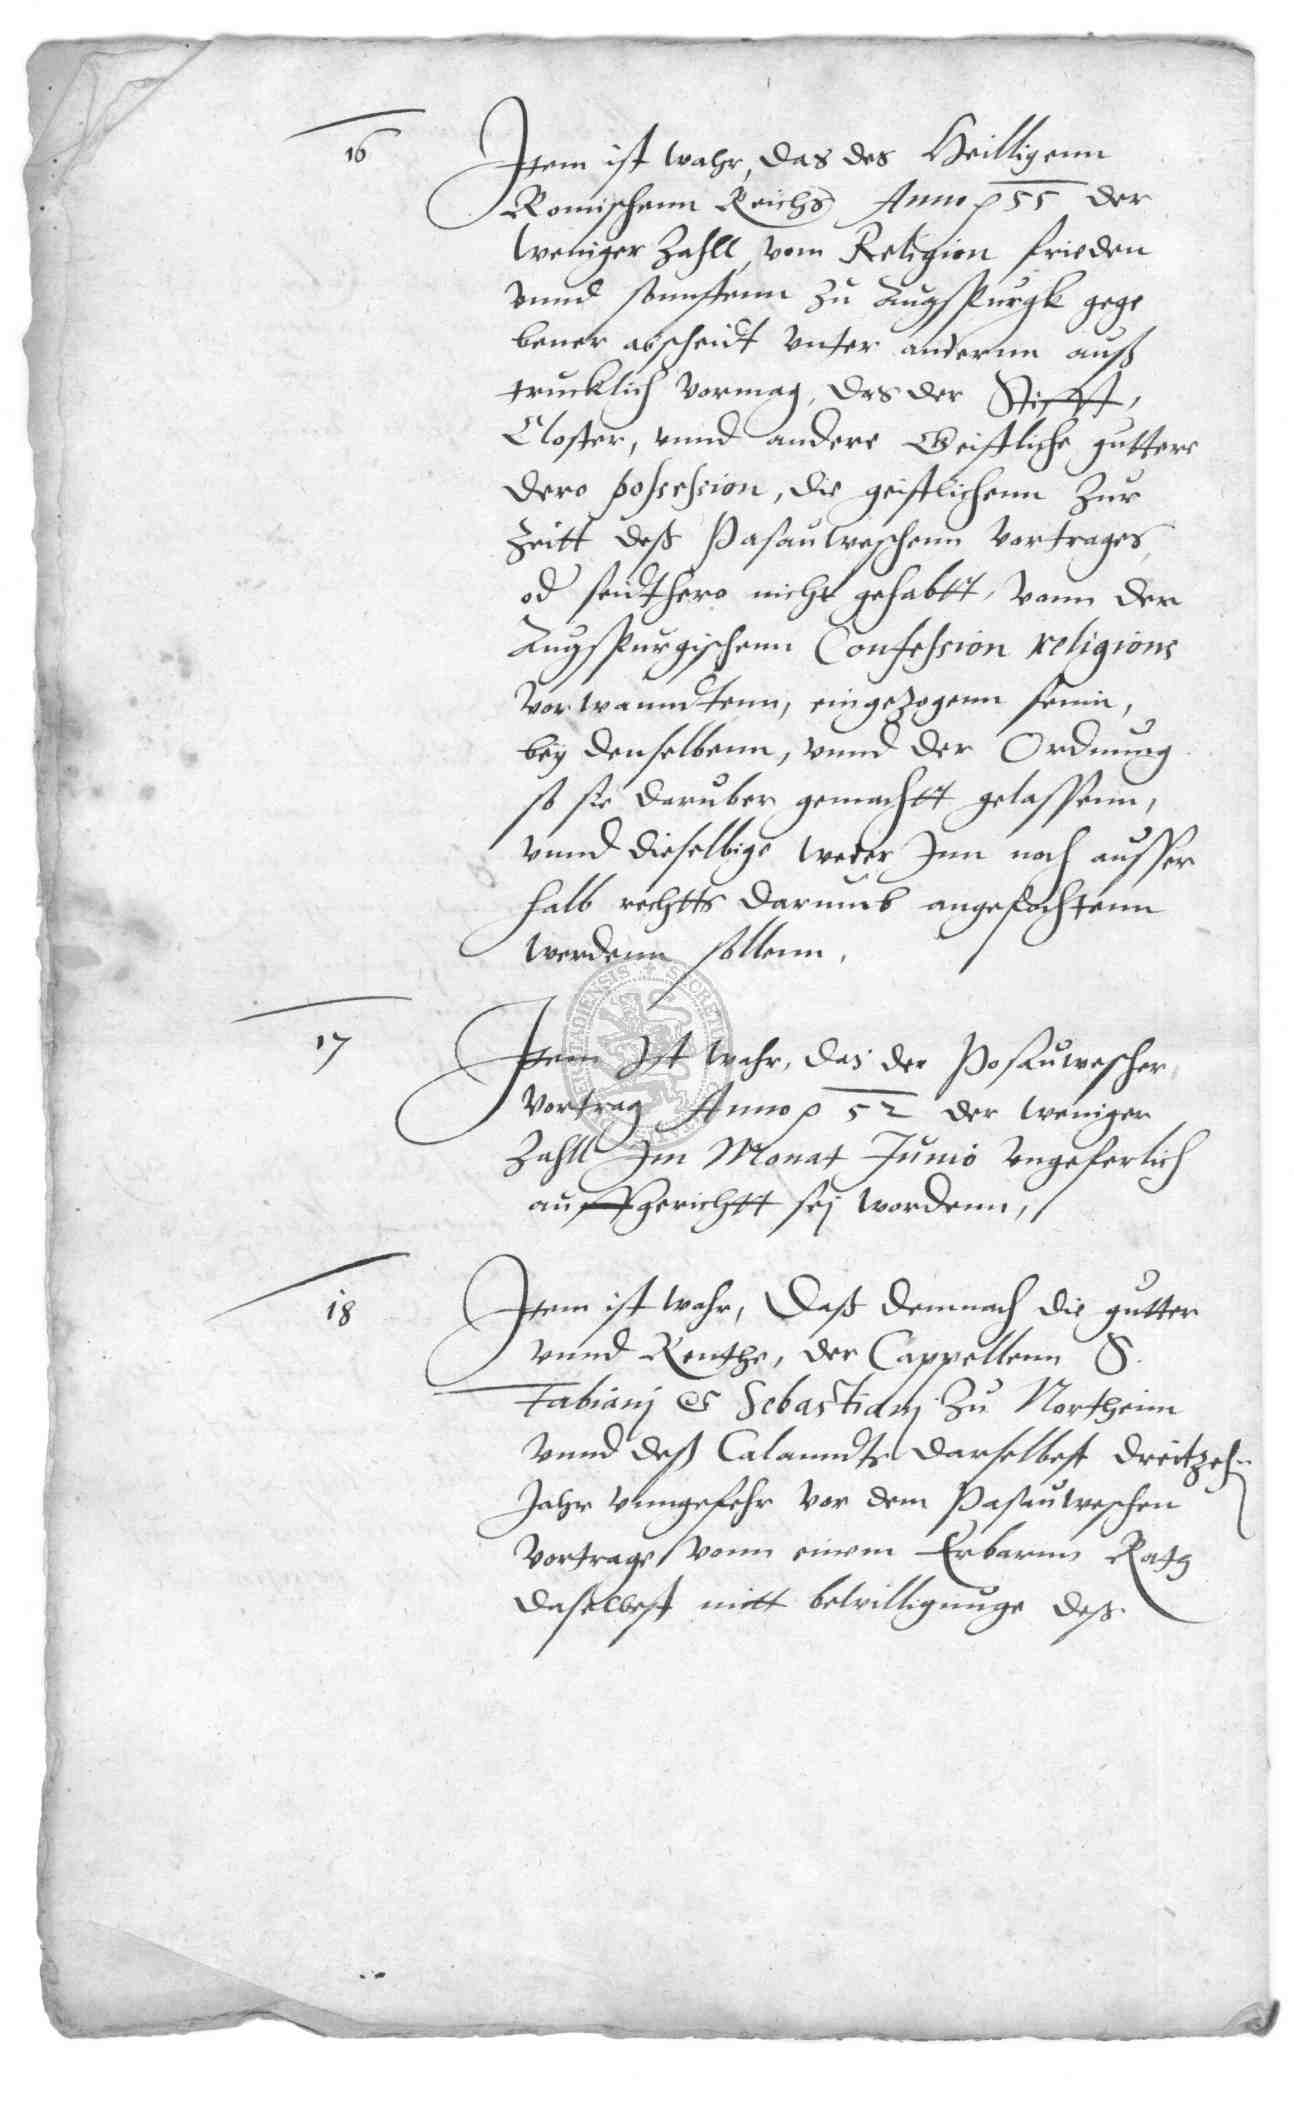 16
Item ist wahr, das des Heilligenn
Romischenn Reichs Anno p 55 der
weniger Zahll, vom Religion frieden
vnnd sonnstenn zu Augspurgk gege
bener abscheidt vnter anderm auß
trucklich vormag, das der Stifft,
Closter, vnnd andere Geistliche guttere
dero possession, die geistlichenn Zur
Zeitt deß Pasauweschenn Vortrages,
od seidthero nicht gehabtt, vonn der
Augspurgischenn Confession religions
Vorwanndtenn, eingezogenn seinn,
bey denselbenn, vnnd der Ordnung
so sie daruber gemachtt gelassenn,
vnnd dieselbige weder Inn noch ausser
halb rechtts darumb angefochtenn
werdenn sollenn.
17
Item Ist wahr, das der Pasauwescher
Vortrag Anno p 52 der weniger
Zahll Im Monat Junio vngeferlich
auffgerichtt sej wordenn,
18
Item ist wahr, Daß demnach die gutter
vnnd Renthe, der Cappellenn S.
Fabianj & Sebastianj zu Northeim
Vnnd deß Calanndts darselbest dreitzehn
Jahr vnngefehr vor dem Pasauweschen
Vortrage vonn einem Erbarnn Rath
daselbest mitt bewilligunge deß